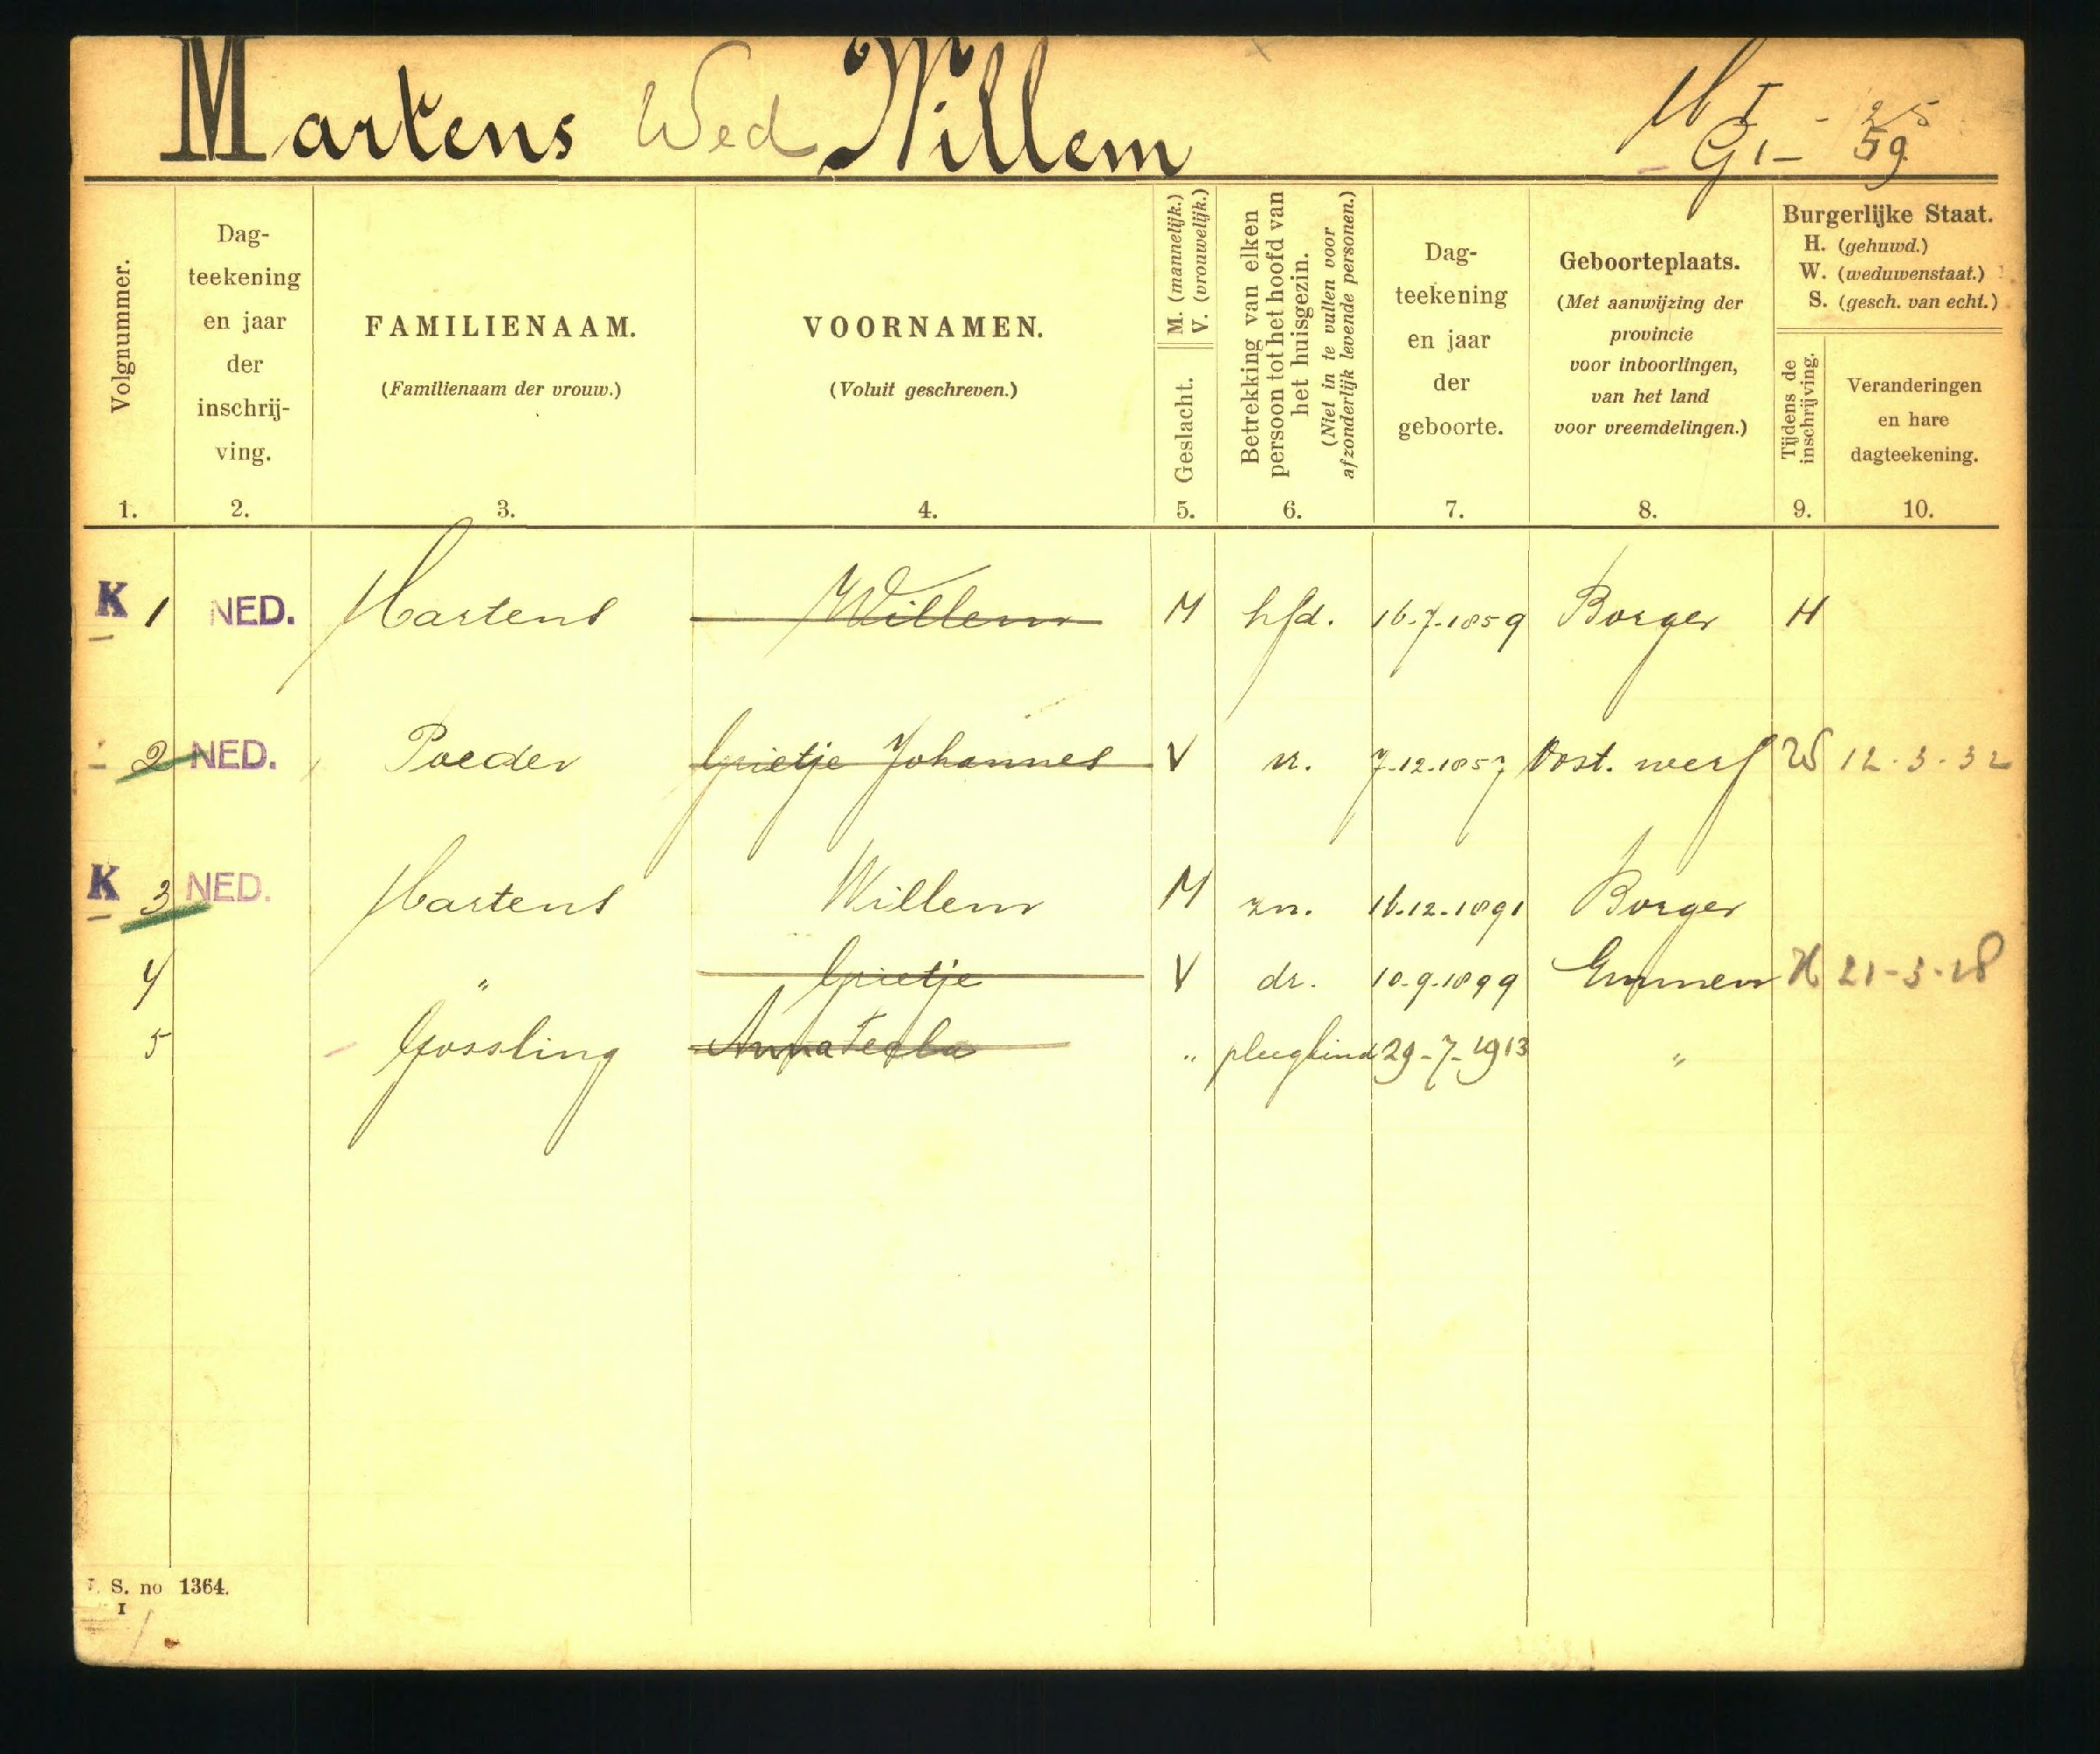 Martens Wed Willem
G1- 59
Volgnummer.
1.
Dag-
teekening
en jaar
der
inschrij-
ving.
2.
FAMILIENAAM.
(Familienaam der vrouw.)
3.
VOORNAMEN.
(Voluit geschreven.)
4.
Geslacht. M. (mannelijk.)
V. (vrouwelijk.)
5.
Betrekking van elken
persoon tot het hoofd van
het huisgezin.
(Niet in te vullen voor
afzonderlijk levende personen.)
6.
Dag-
teekening
en jaar
der
geboorte.
7.
Geboorteplaats.
(Met aanwijzing der
provincie
voor inboorlingen,
van het land
voor vreemdelingen.)
8.
Burgerlijke Staat.
H. (gehuwd.)
W. (weduwenstaat.)
S. (gesch. van echt.)
Tijdens de
inschrijving.
9.
Veranderingen
en hare
dagteekening.
10.
K 1 NED. Martens Willem M hfd. 16-7-1859 Borger H
2 NED. Poeder Grietje Johannes V vr. 7-12-1857 Oost. werf W 12-3-32
K 3 NED. Martens Willem M zn. 16-12-1891 Borger
4 " Grietje V dr. 10-9-1899 Emmen H 21-3-18
5 Gossling Anna Tecla " pleegkind 29-7-1913 "
S. no 1364.
I